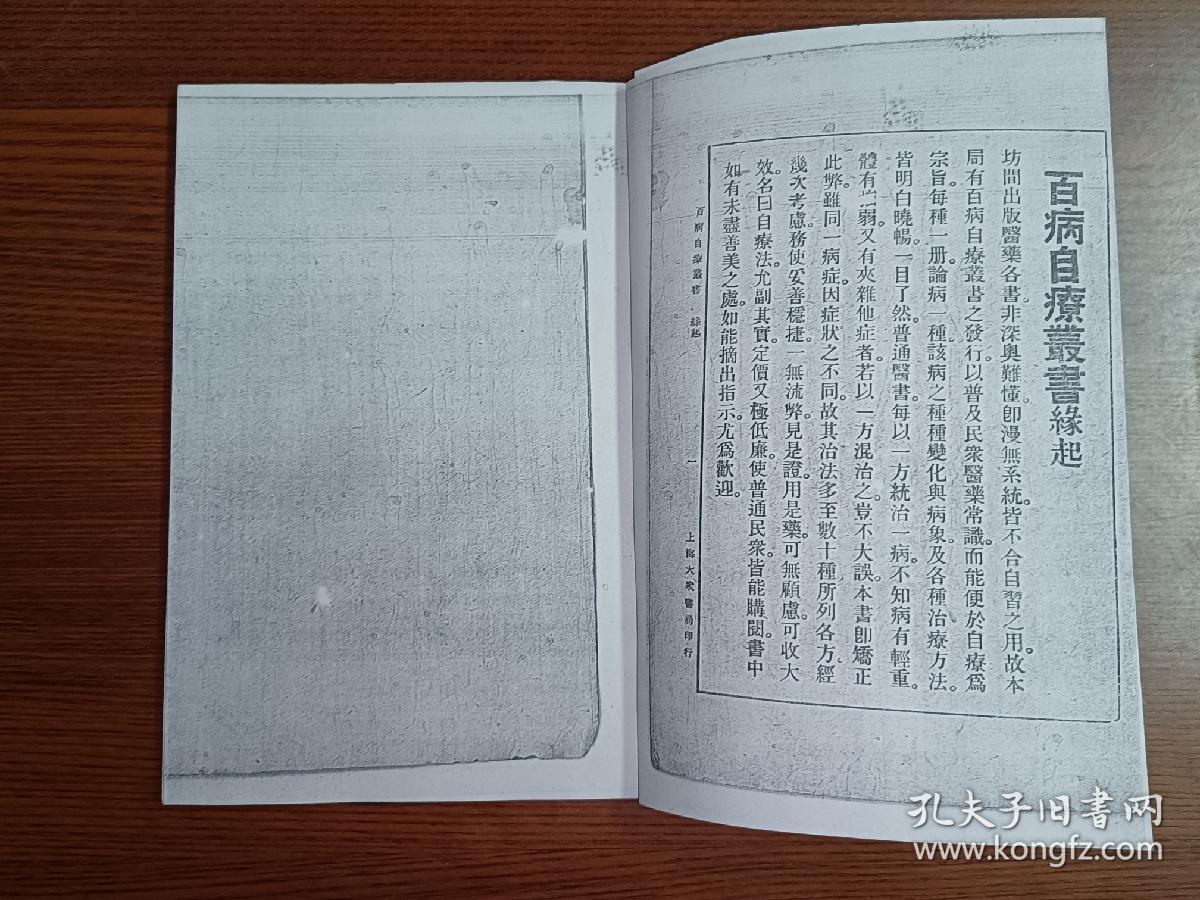 百病自療叢書緣起
坊間出版醫藥各書。非深奧難懂。卽漫無系統。皆不合自習之用。故本
局有百病自療叢書之發行。以普及民衆醫藥常識。而能便於自療爲
宗旨。每種一册。論病一種。該病之種種變化與病象。及各種治療方法。
皆明白曉暢。一目了然。普通醫書。每以一方統治一病。不知病有輕重。
體有壯弱。又有夾雜他症者。若以一方混治之。豈不大誤。本書卽矯正
此弊。雖同一病症。因症狀之不同。故其治法多至數十種。所列各方。經
幾次考慮。務使妥善穩捷。一無流弊。見是證。用是藥。可無顧慮。可收大
效。名曰自療法。允副其實。定價又極低廉。使普通民衆。皆能購閱。書中
如有未盡善美之處。如能摘出指示。尤爲歡迎。
百病自療叢書 緣起
一
上海大衆書局印行
孔夫子旧书网
www.kongfz.com